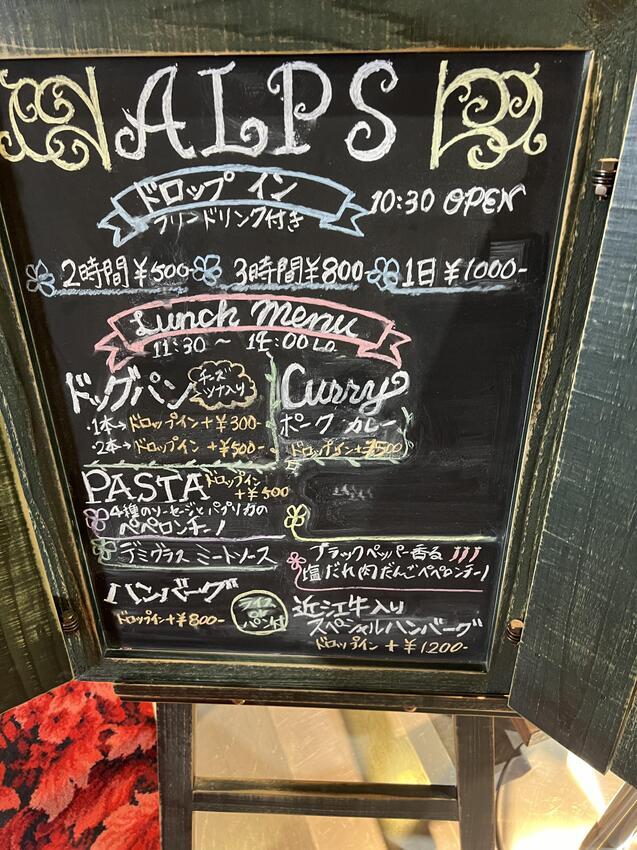 ALPS
ドロップイン
フリードリンク付き
10:30 OPEN
2時間¥500- 3時間¥800- 1日¥1000-
Lunch Menu
11:30 ~ 14:00 LO
ドッグパン
チーズ
ツナ入り
・1本→ドロップイン+¥300-
・2本→ドロップイン+¥500-
Curry
ポーク カレー
ドロップイン+¥500
PASTA ドロップイン
+¥500
4種のソーセージとパプリカの
ペペロンチーノ
デミグラス ミートソース
ブラックペッパー香る
塩だれ肉だんごペペロンチーノ
ハンバーグ
ドロップイン+¥800-
ライス
or
パン付
近江牛入り
スペシャルハンバーグ
ドロップイン+¥1200-